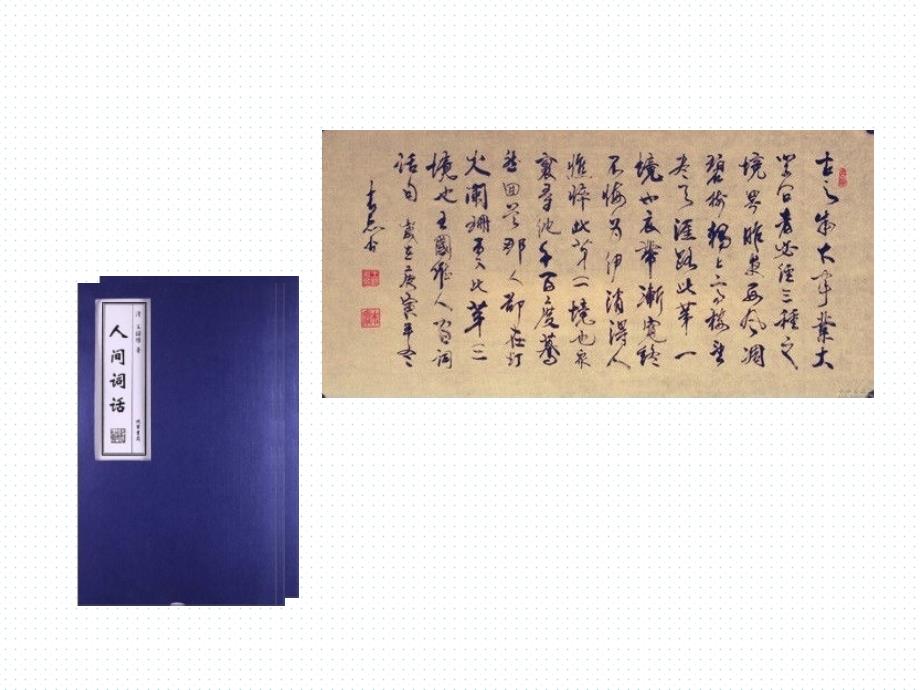 古之成大事業大
學問者必經三種之
境界昨夜西風凋
碧樹獨上高樓望
尽天涯路此第一
境也衣帶漸寬終
不悔为伊消得人
憔悴此第二境也衆
裏尋他千百度驀
然回首那人卻在灯
火闌珊處此第三
境也王國維人間詞
話句 歲在庚寅年冬
清 王國維 著
人间词话